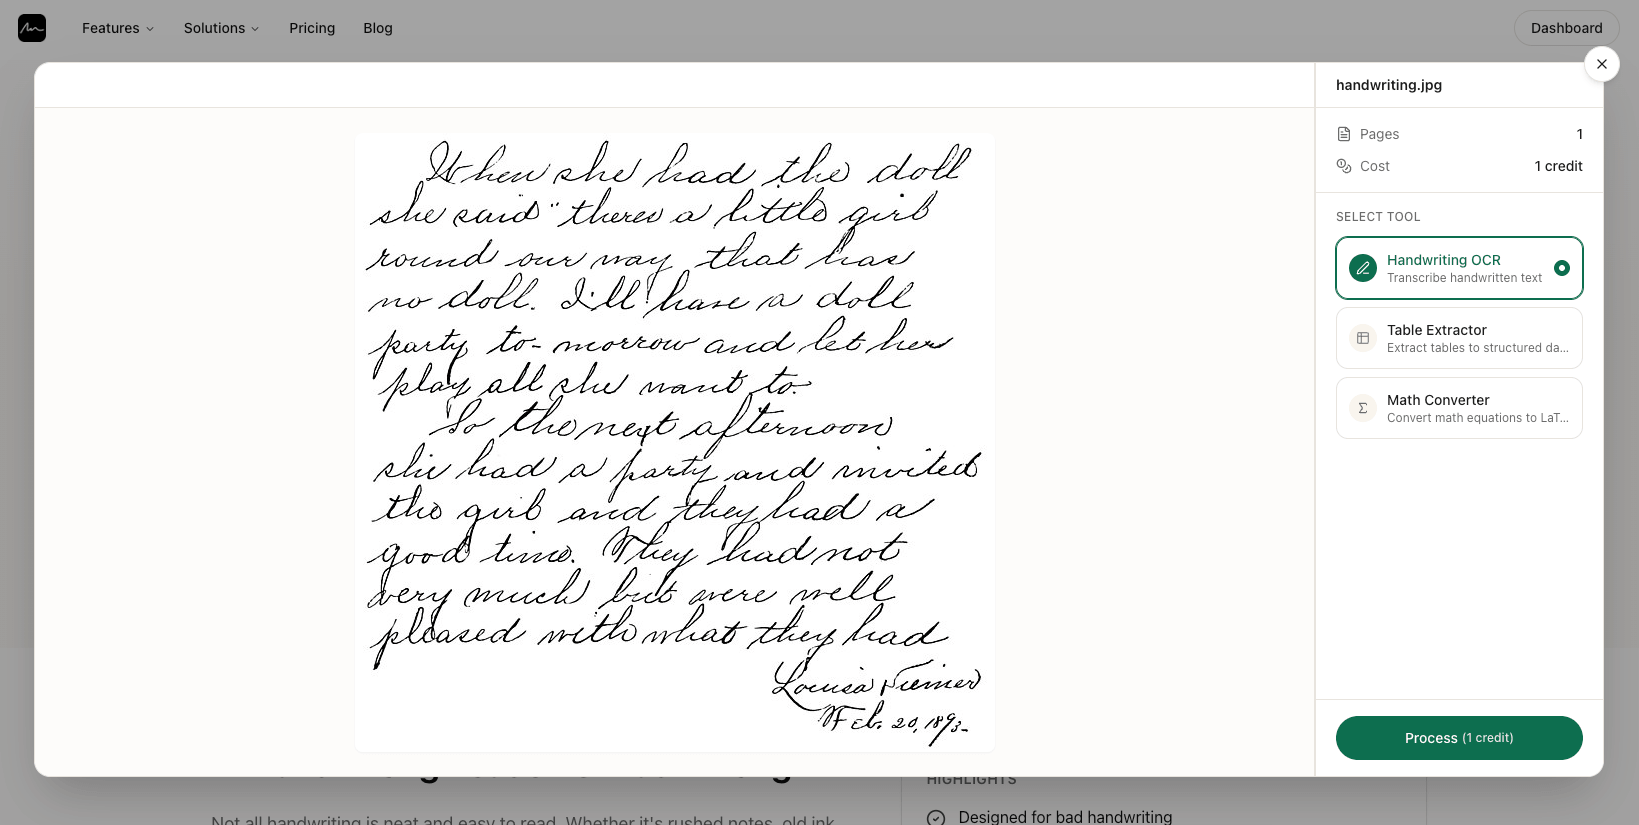 Features
Solutions
Pricing
Blog
Dashboard
When she had the doll
she said "theres a little girl
round our way that has
no doll. I'll have a doll
party to-morrow and let her
play all she want to.
So the next afternoon
she had a party and invited
the girl and they had a
good time. They had not
very much but were well
pleased with what they had
Louisa
Feb. 20, 1893-
handwriting.jpg
Pages 1
Cost 1 credit
SELECT TOOL
Handwriting OCR
Transcribe handwritten text
Table Extractor
Extract tables to structured da...
Math Converter
Convert math equations to LaT...
Process (1 credit)
HIGHLIGHTS
Not all handwriting is neat and easy to read. Whether it's rushed notes, old ink
Designed for bad handwriting